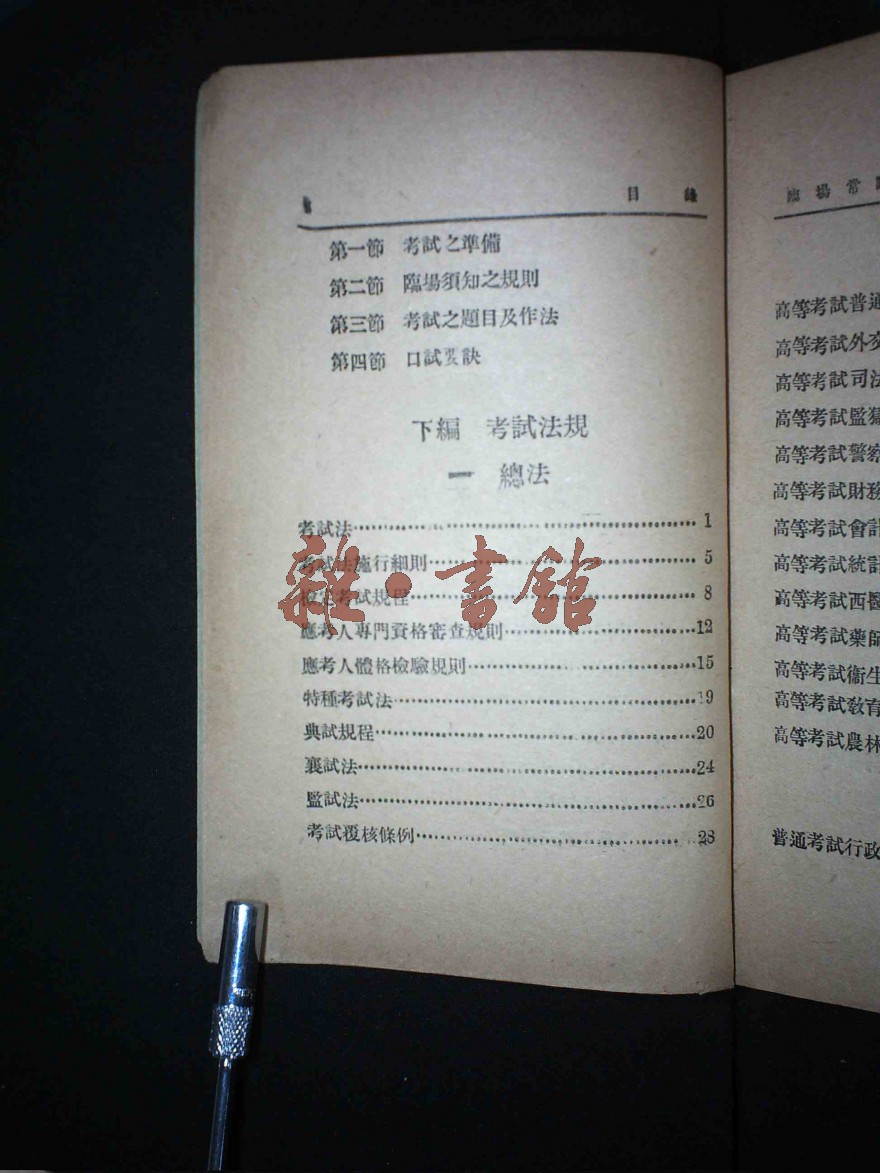 目 錄
第一節 考試之準備
第二節 臨場須知之規則
第三節 考試之題目及作法
第四節 口試要訣
下編 考試法規
一 總法
考試法 1
考試法施行細則 5
檢定考試規程 8
應考人專門資格審查規則 12
應考人體格檢驗規則 15
特種考試法 19
典試規程 20
襄試法 24
監試法 26
考試覆核條例 28
雜·書館
臨場常
高等考試普通
高等考試外交
高等考試司法
高等考試監獄
高等考試警察
高等考試財務
高等考試會計
高等考試統計
高等考試西醫
高等考試藥師
高等考試衞生
高等考試教育
高等考試農林
普通考試行政